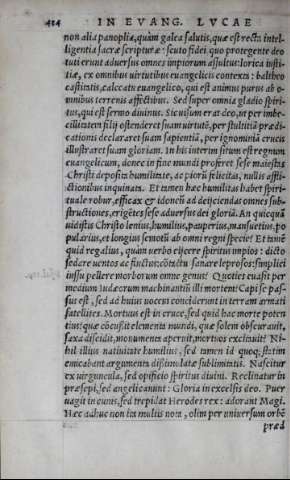 414 IN EVANG. LVCAE
non alia panoplia, quàm galea salutis, quæ est recta intel-
ligentia sacræ scripturæ: scuto fidei, quo protegente deo
tuti erunt aduersus omnes impiorum assultus: lorica iusti-
tiæ, ex omnibus uirtutibus euangelicis contexta: baltheo
castitatis, calceatu euangelico, qui est animus purus ab o-
mnibus terrenis affectibus. Sed super omnia gladio spiri-
tus, qui est sermo diuinus. Sic uisum erat deo, ut per imbe-
cillitatem filij ostenderet suam uirtutē, per stultitiã prædi-
cationis declararet suam sapientiã, per ignominiã crucis
illustraret suam gloriam. In his interim situm est regnum
euangelicum, donec in fine mundi proferet sese maiestas
Christi deposita humilitate, ac piorū felicitas, nullis affli-
ctionibus inquinata. Et tamen hæc humilitas habet spiri-
tuale robur, efficax & idoneū ad deijciendas omnes sub-
structiones, erigētes sese aduersus dei gloriã. An quicquã
uidistis Christo lenius, humilius, pauperius, mansuetius, po
pularius, et longius semotũ ab omni regni specie? Et tamē
quid regalius, quàm uerbo eijcere spiritus impios: dicto
sedare uentos ac fluctus: cõtactu sanare leprosos: simplici
iussu pellere morborum omne genus? Quoties euasit per
medium Iudæorum machinantiũ illi mortem? Capi se pas-
sus est, sed ad huius uocem conciderunt in terram armati
satellites. Mortuus est in cruce, sed quid hac morte poten
tius: quæ cõcussit elementa mundi, quæ solem obscurauit,
saxa discidit, monumenta aperuit, mortuos exciuit? Ni-
hil illius natiuitate humilius, sed tamen id quoq; statim
emicabant argumenta dissimulatæ sublimitatis. Nascitur
ex uirguncula, sed opificio spiritus diuini. Reclinatur in
præsepi, sed angeli canunt: Gloria in excelsis deo. Puer
uagit in cunis, sed trepidat Herodes rex: adorant Magi.
Hæc adhuc non ita multis nota, olim per uniuersum orbē
præd